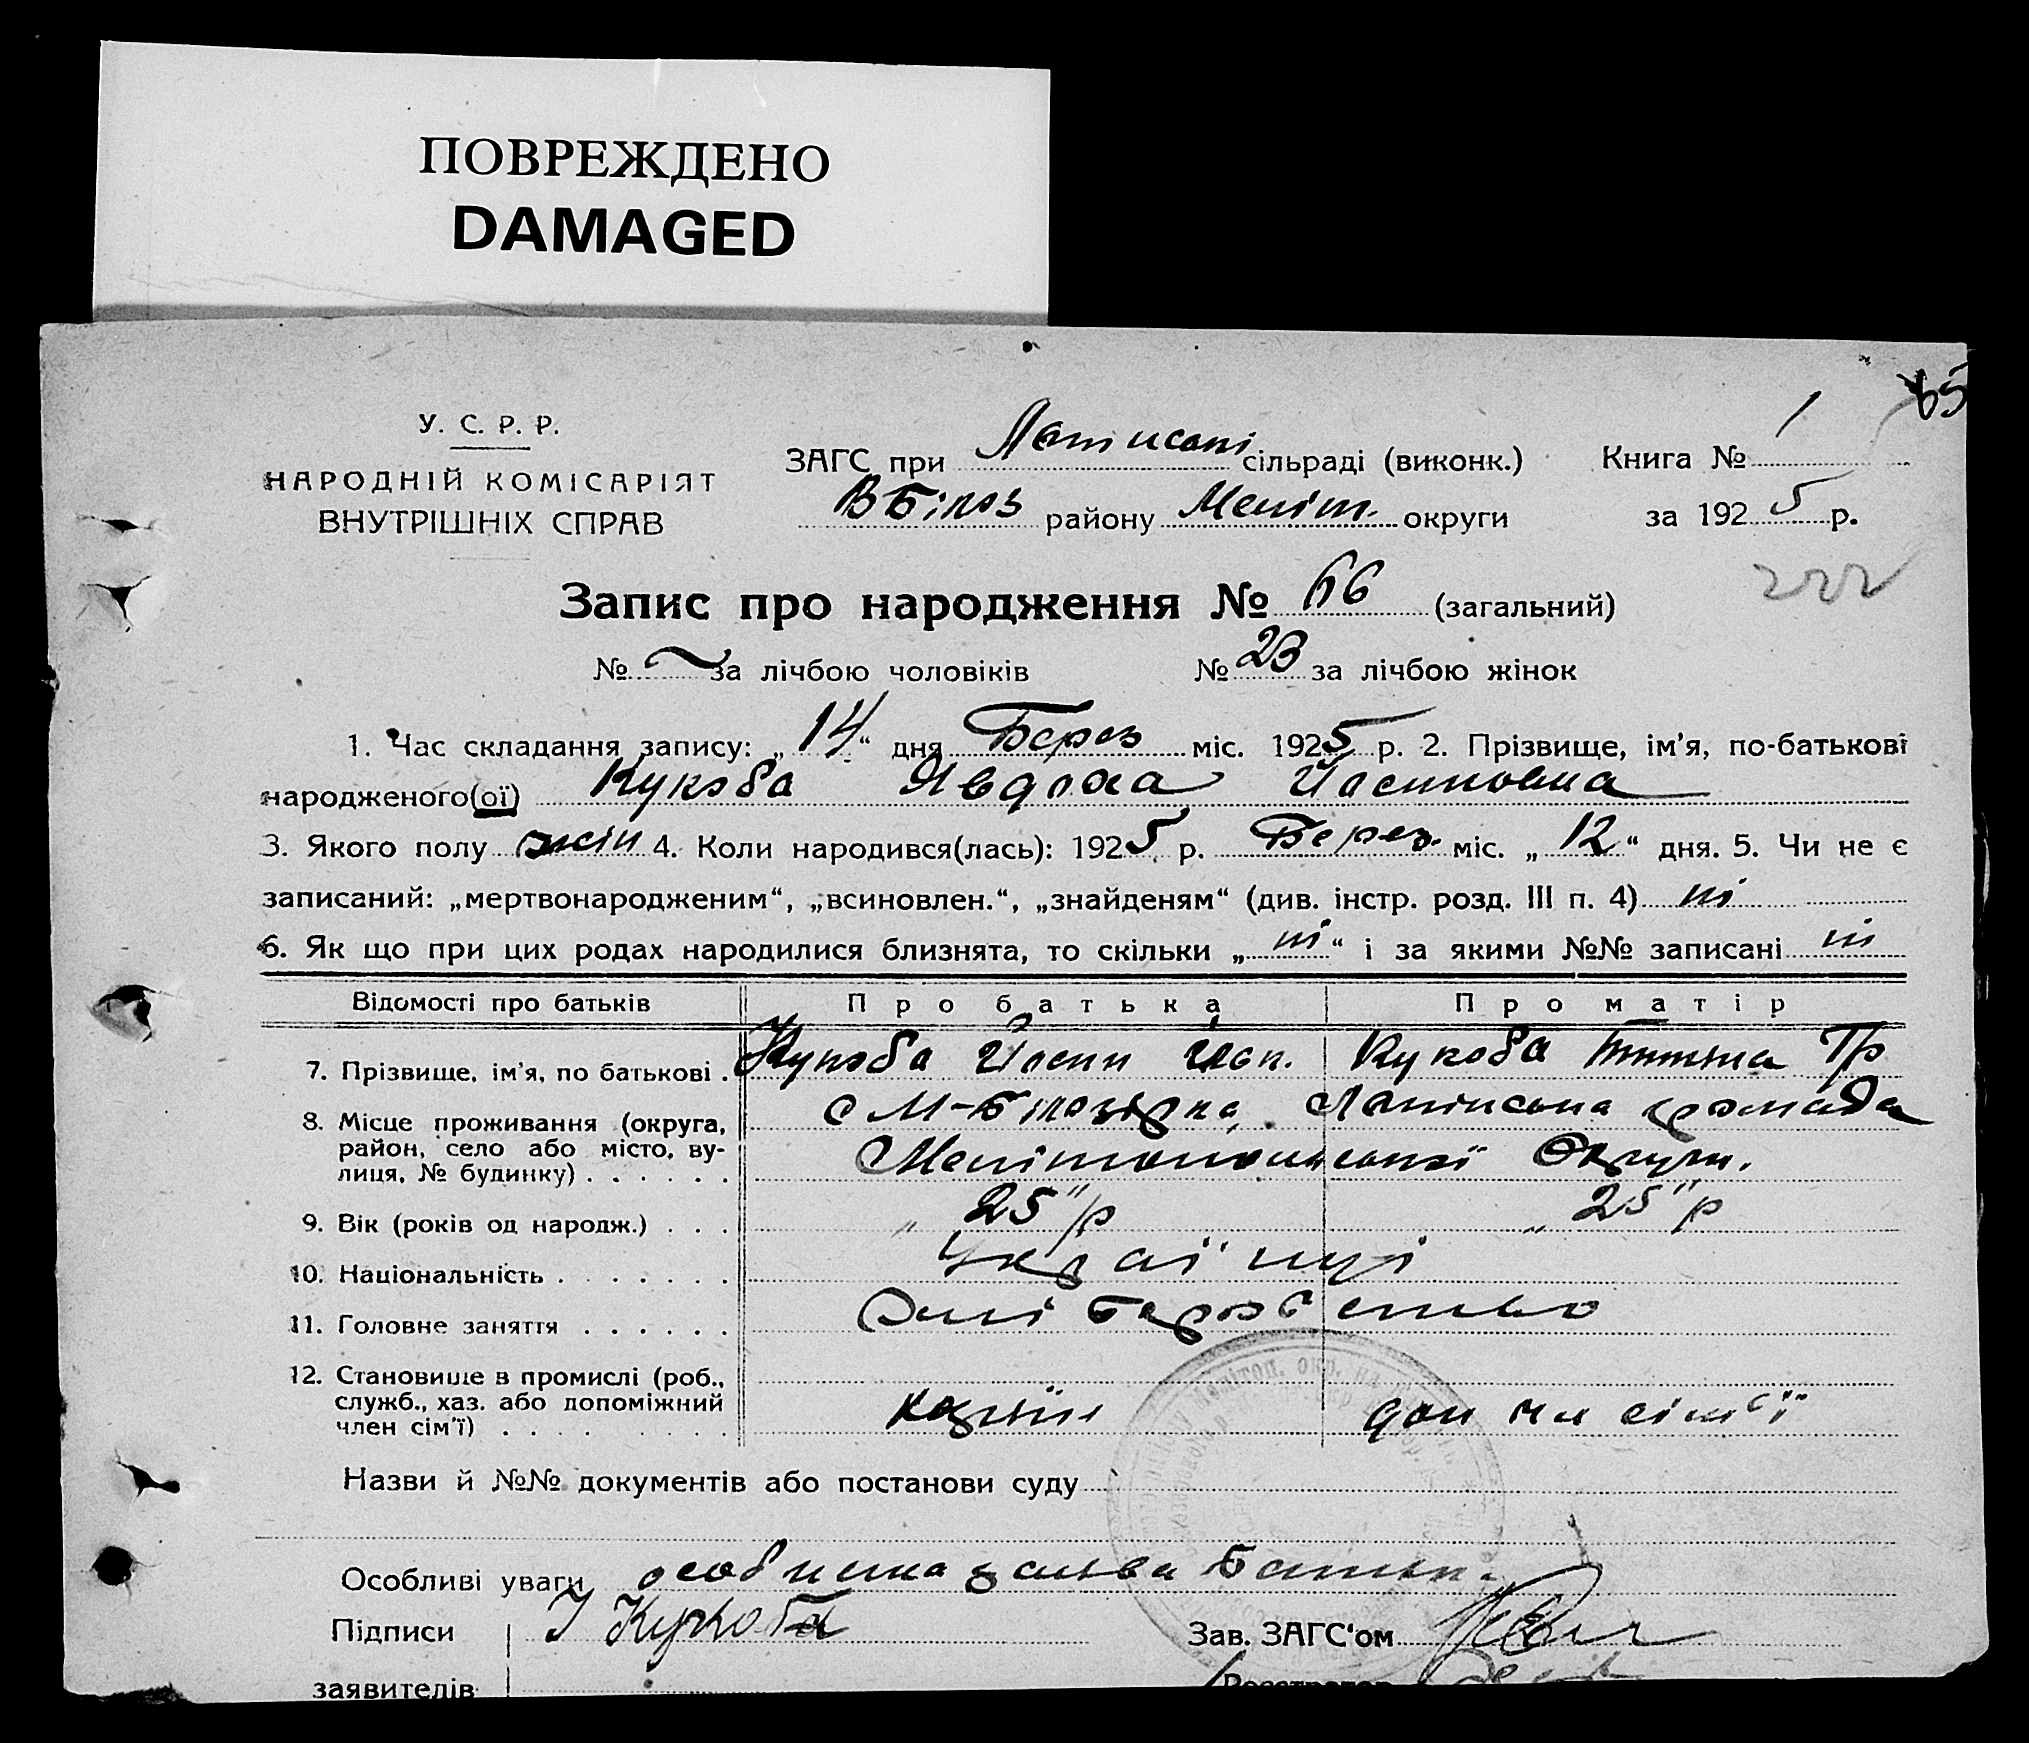 ПОВРЕЖДЕНО
DAMAGED
65
У. С. Р. Р.
НАРОДНІЙ КОМІСАРІЯТ
ВНУТРІШНІХ СПРАВ
ЗАГС при сільраді (виконк.) Книга № 1
В Білоз району Меліт. округи за 1925 р.
Запис про народження № 66 (загальний)
222
№ за лічбою чоловіків № 23 за лічбою жінок
1. Час складання запису: „14“ дня Берез міс. 1925 р. 2. Прізвище, ім'я, по-батькові
народженого(ої) Кукоба Явдоха Йосиповна
3. Якого полу жін 4. Коли народився(лась): 1925 р. Берез. міс. „12“ дня. 5. Чи не є
записаний: „мертвонародженим“, „всиновлен.“, „знайденям“ (див. інстр. розд. III п. 4) ні
6. Як що при цих родах народилися близнята, то скільки „ні“ і за якими №№ записані ні
Відомості про батьків Про батька Про матір
7. Прізвище, ім'я, по батькові . Кукоба Йосип Кукоба Тр
8. Місце проживання (округа, с М-Білозірка громада
район, село або місто, ву- Мелітопольської Округи.
лиця, № будинку) . . . . . .
9. Вік (років од народж.) . . . „25" р „25" р
10. Національність . . . . . . . Українці
11. Головне заняття . . . . . . Хліборобство
12. Становище в промислі (роб.,
служб., хаз. або допоміжний хазяїн доп чл сім'ї
член сім'ї) . . . . . . . .
Назви й №№ документів або постанови суду
Особливі уваги особиста заява батьк.
Підписи І Кукоба Зав. ЗАГС'ом
заявителів Реєстратор